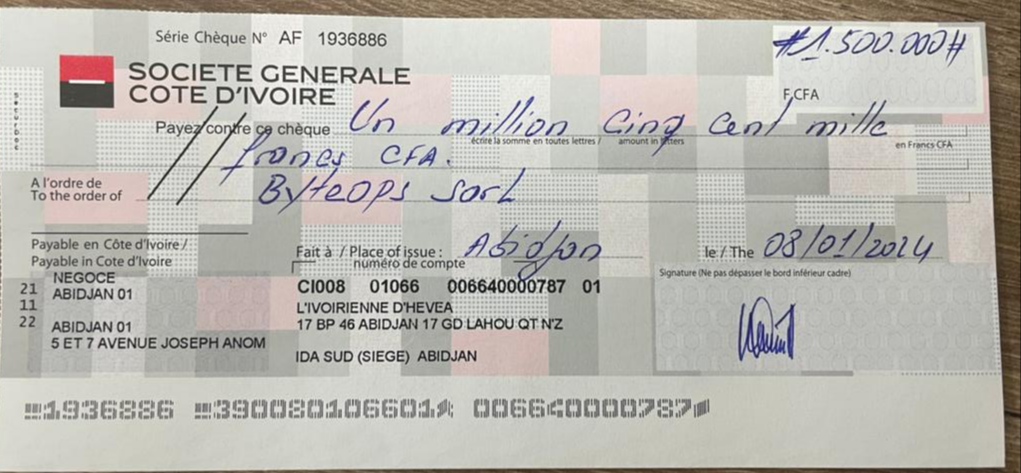 Série Chèque N° AF 1936886
#1.500.000#
F.CFA
SOCIETE GENERALE
COTE D'IVOIRE
Payez contre ce chèque Un million Cinq Cent mille
écrire la somme en toutes lettres / amount in letters
en Francs CFA
francs CFA.
A l'ordre de
To the order of
ByteOps sarl
Payable en Côte d'Ivoire /
Payable in Cote d'Ivoire
Fait à / Place of issue : Abidjan
le / The 08/01/2024
numéro de compte
Signature (Ne pas dépasser le bord inférieur cadre)
NEGOCE
21 ABIDJAN 01
11
22 ABIDJAN 01
5 ET 7 AVENUE JOSEPH ANOM
CI008 01066 006640000787 01
L'IVOIRIENNE D'HEVEA
17 BP 46 ABIDJAN 17 GD LAHOU QT N'Z
IDA SUD (SIEGE) ABIDJAN
1936886 390080106601 006640000787